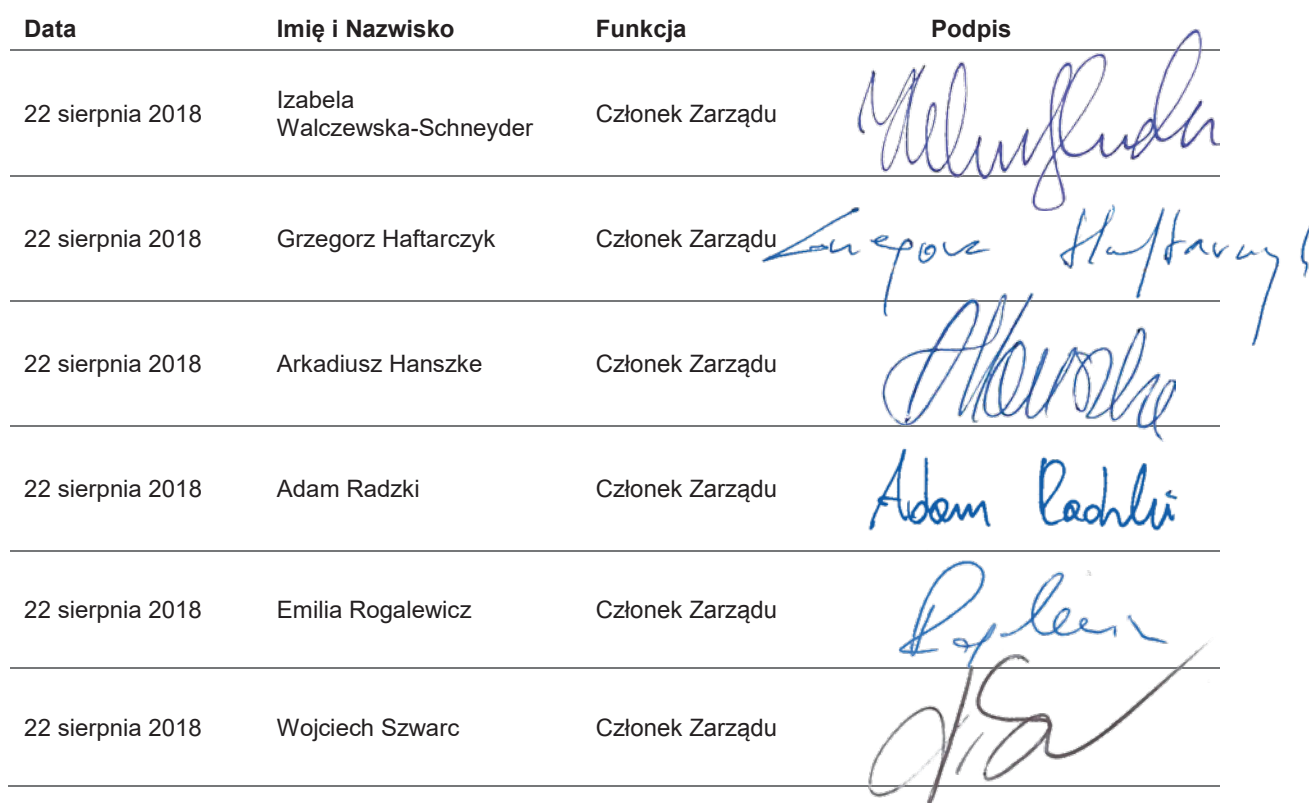 Data Imię i Nazwisko Funkcja Podpis
22 sierpnia 2018 Izabela Walczewska-Schneyder Członek Zarządu
22 sierpnia 2018 Grzegorz Haftarczyk Członek Zarządu Grzegorz Haftarczyk
22 sierpnia 2018 Arkadiusz Hanszke Członek Zarządu
22 sierpnia 2018 Adam Radzki Członek Zarządu Adam Radzki
22 sierpnia 2018 Emilia Rogalewicz Członek Zarządu
22 sierpnia 2018 Wojciech Szwarc Członek Zarządu